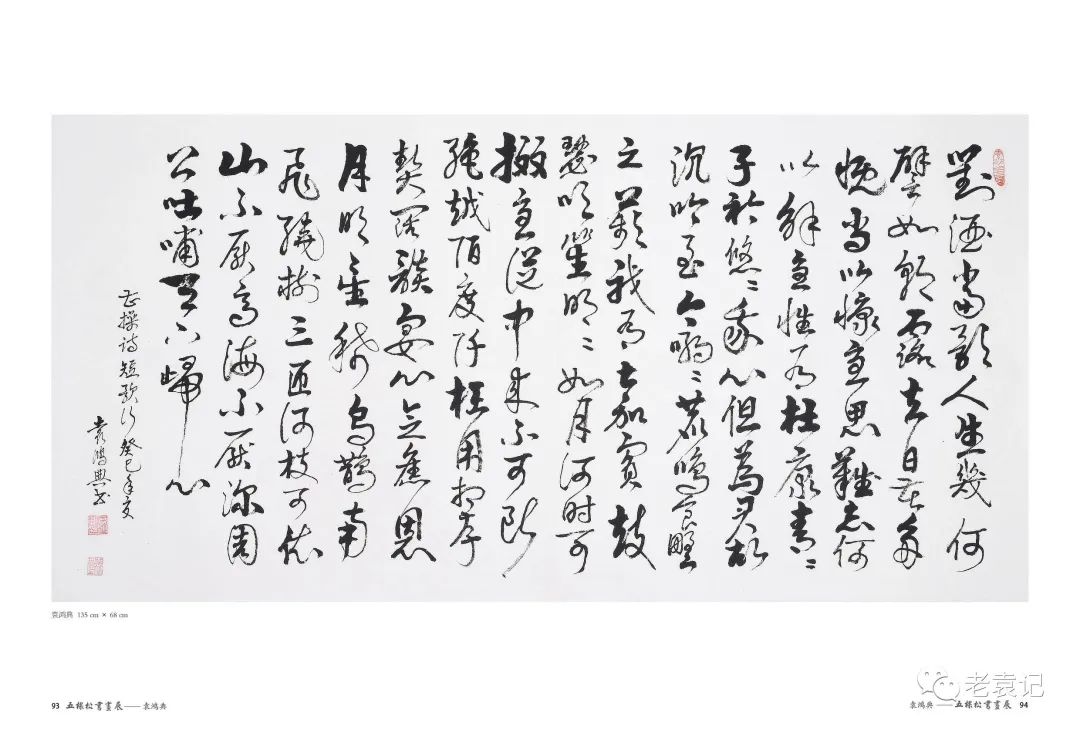 對酒當歌人生幾何
譬如朝露去日苦多
慨当以慷憂思難忘何
以解憂惟有杜康青〻
子衿悠〻我心但為君故
沉吟至今呦〻鹿鳴食野
之苹我有嘉賓鼓
瑟吹笙明〻如月何时可
掇憂從中来不可断
绝越陌度阡枉用相存
契阔談宴心念舊恩
月明星稀烏鵲南
飛繞樹三匝何枝可依
山不厭高海不厭深周
公吐哺天下歸心
曹操诗短歌行癸巳年夏
袁鸿典书
袁鸿典 135 cm × 68 cm
93 五棵松書畫展——袁鸿典
袁鸿典——五棵松書畫展 94
老袁记